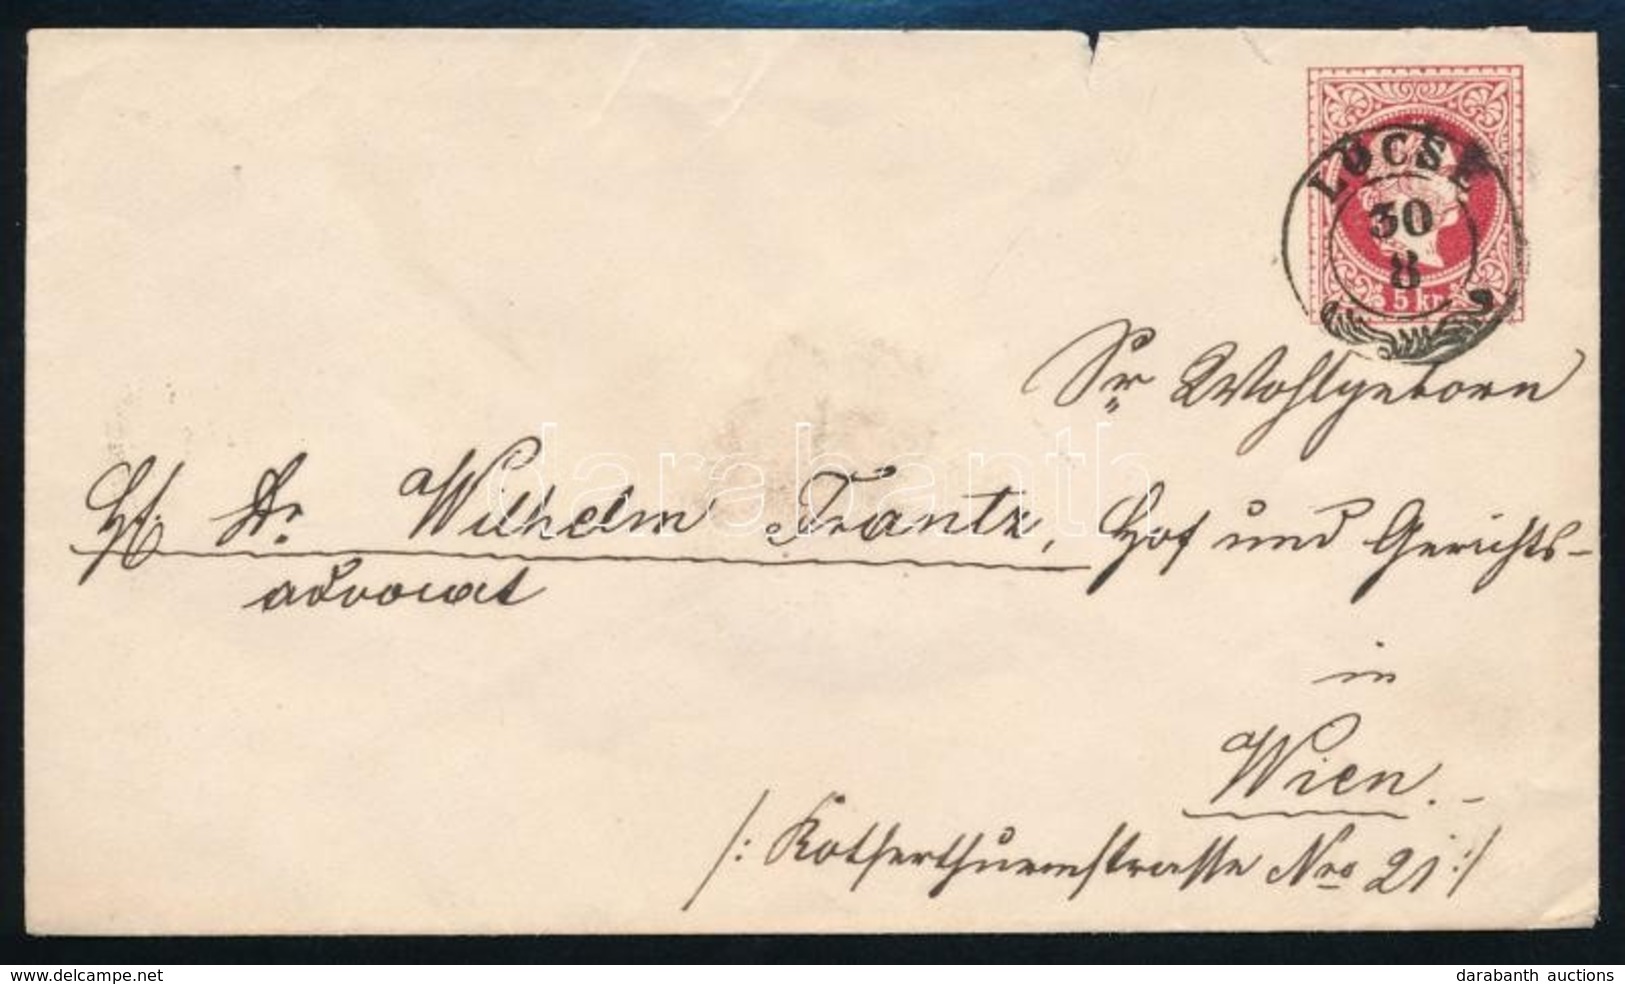 LŐCSE
30
8
5 kr.
Sr Wohlgeborn
H. Dr. Wilhelm Frantz, Hof und Gerichts-
advocat
in
Wien.
/: Rothenthurmstrasse Nro 21 :/
darabanth
www.delcampe.net
darabanth auctions